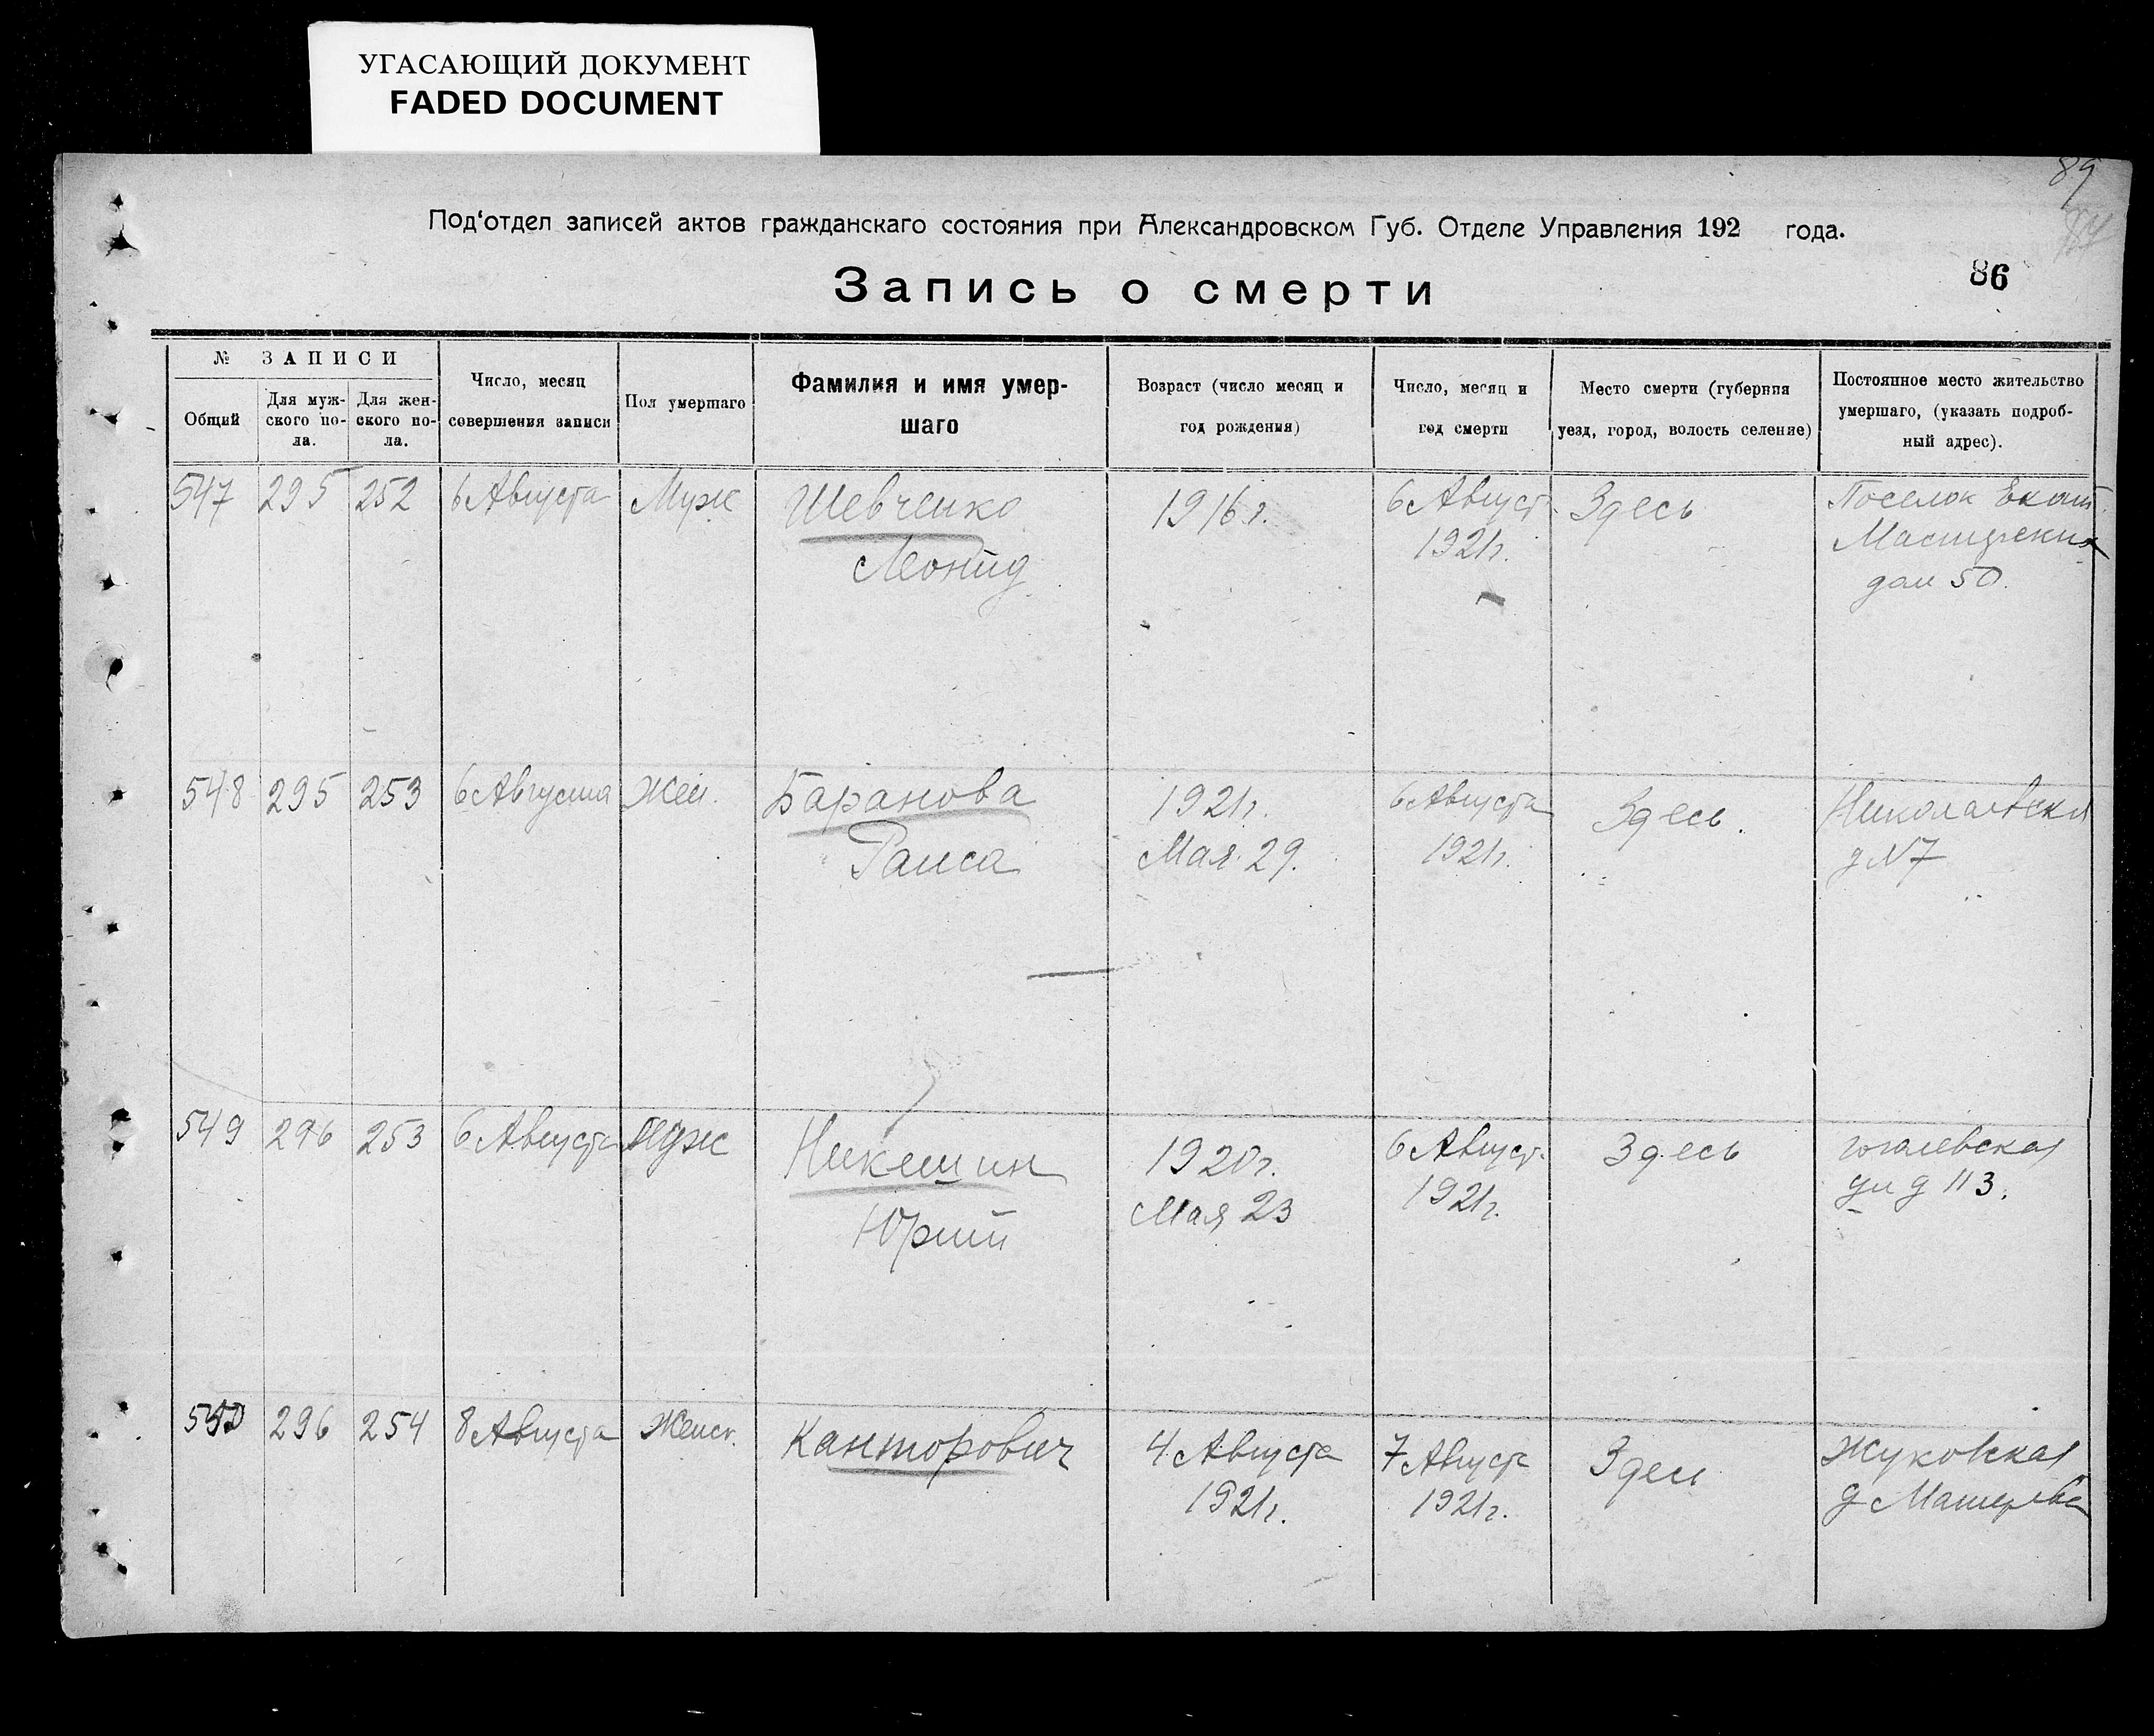 УГАСАЮЩИЙ ДОКУМЕНТ
FADED DOCUMENT
89
Под‘отдел записей актов гражданскаго состояния при Александровском Губ. Отделе Управления 192 года.
86
Запись о смерти
№ ЗАПИСИ
Общий
Для муж-
ского по-
ла.
Для жен-
ского по-
ла.
Число, месяц
совершения записи
Пол умершаго
Фамилия и имя умер-
шаго
Возраст (число месяц и
год рождения)
Число, месяц и
год смерти
Место смерти (губерния
уезд, город, волость селение)
Постоянное место жительство
умершаго, (указать подроб-
ный адрес).
547 295 252 6 Августа Муж
Шевченко
Леонид
1916 г.
6 Август.
1921 г.
Здесь
Поселок Екат.
дом 50.
548 295 253 6 Августа Жен.
Баранова
Раиса
1921 г.
Мая 29.
6 Августа
1921 г.
Здесь.
Николаевская
д N 7
549 296 253 6 Августа Муж
Никешин
Юрий
1920 г.
Мая 23
6 Август.
1921 г.
Здесь
Гоголевская
ул д 113.
550 296 254 8 Августа Женск.
Канторович
4 Августа
1921 г.
7 Августа
1921 г.
Здесь
Жуковская
д